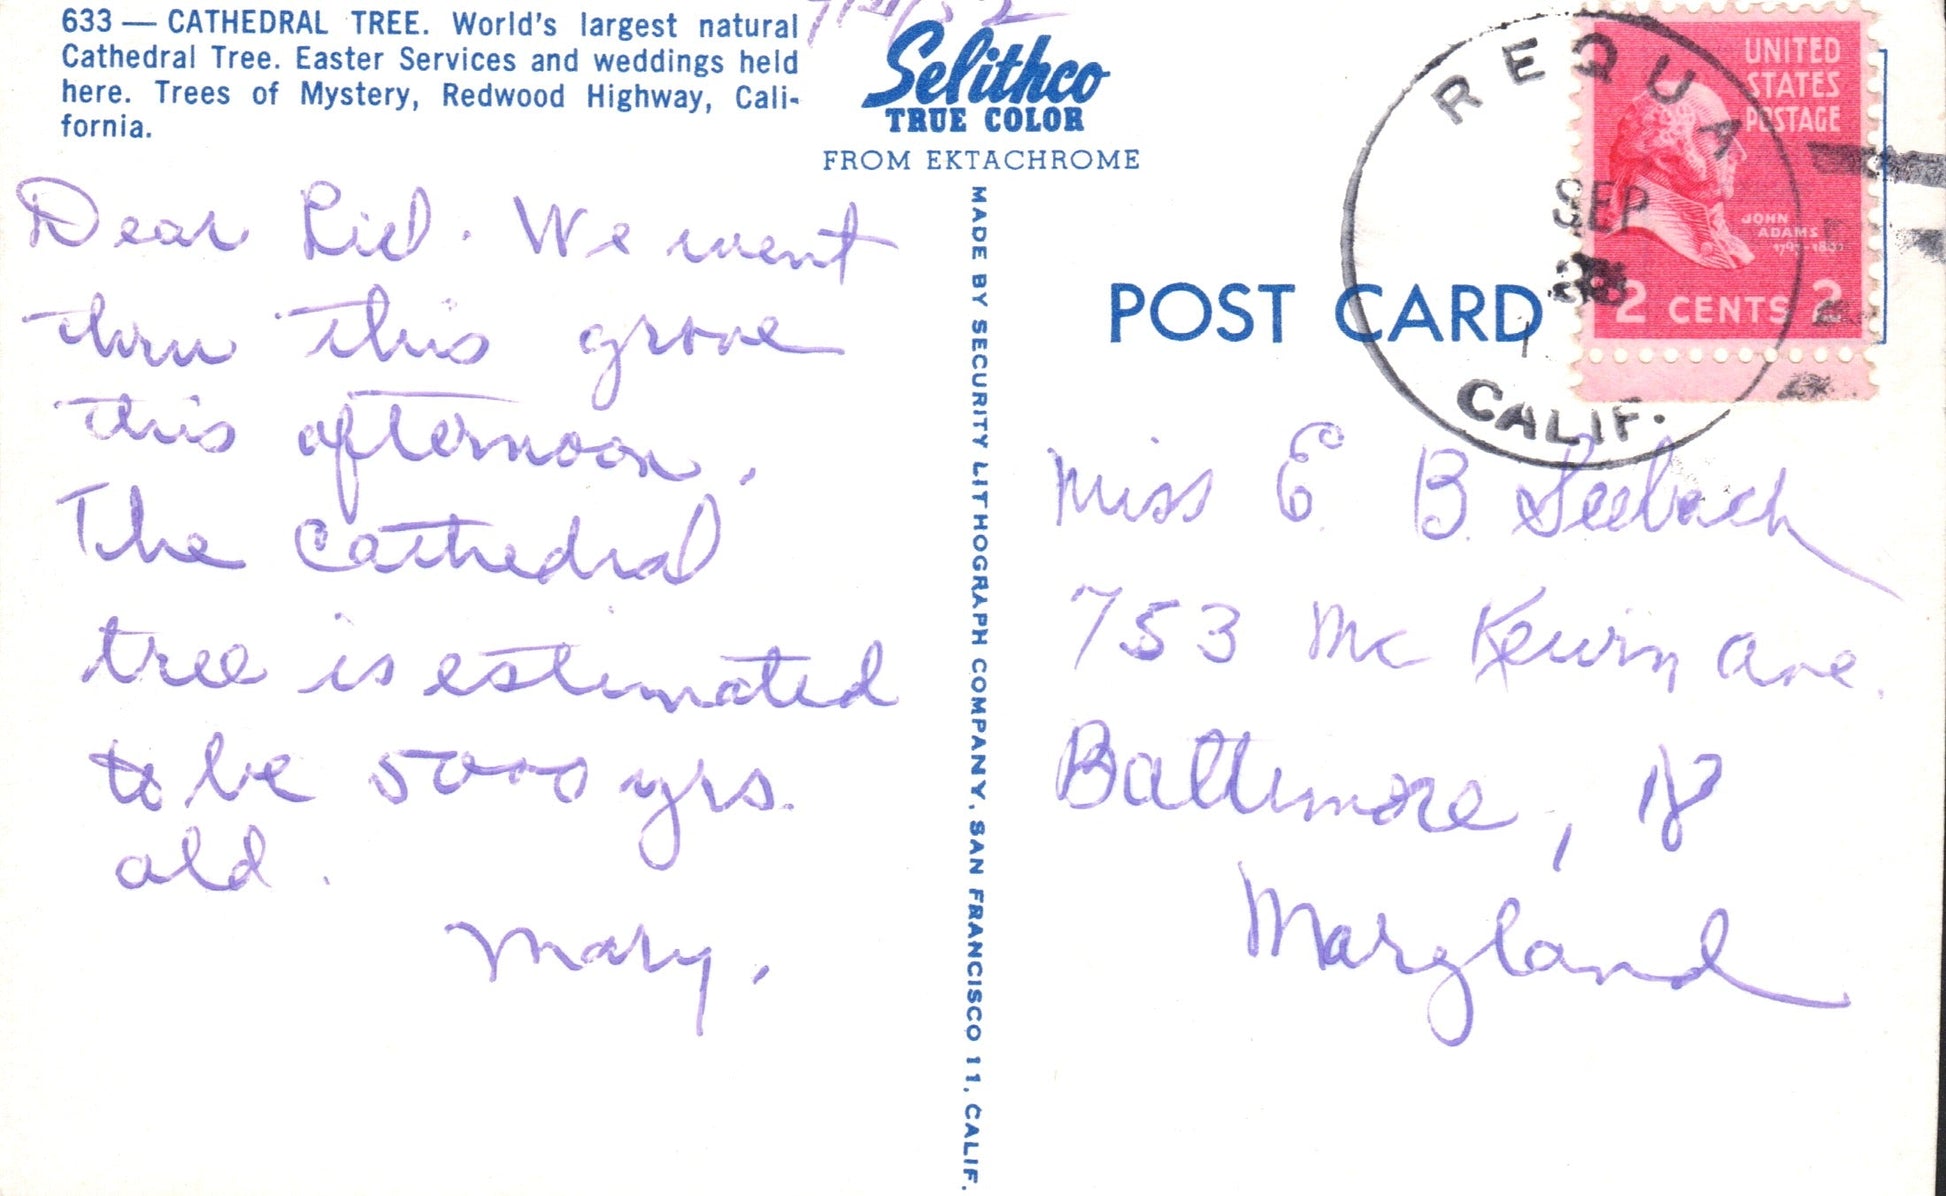 633 — CATHEDRAL TREE. World's largest natural
Cathedral Tree. Easter Services and weddings held
here. Trees of Mystery, Redwood Highway, Cali-
fornia.
Selithco
TRUE COLOR
FROM EKTACHROME
Dear. We went
thru this grove
this afternoon.
The Cathedral
tree is estimated
to be 5000 yrs.
old.
Mary.
MADE BY SECURITY LITHOGRAPH COMPANY, SAN FRANCISCO 11, CALIF.
POST CARD
REQUA
SEP
CALIF.
UNITED
STATES
POSTAGE
JOHN
ADAMS
2 CENTS 2
Miss E. B. Seebach
753 McKewin Ave.
Baltimore, 18
Maryland